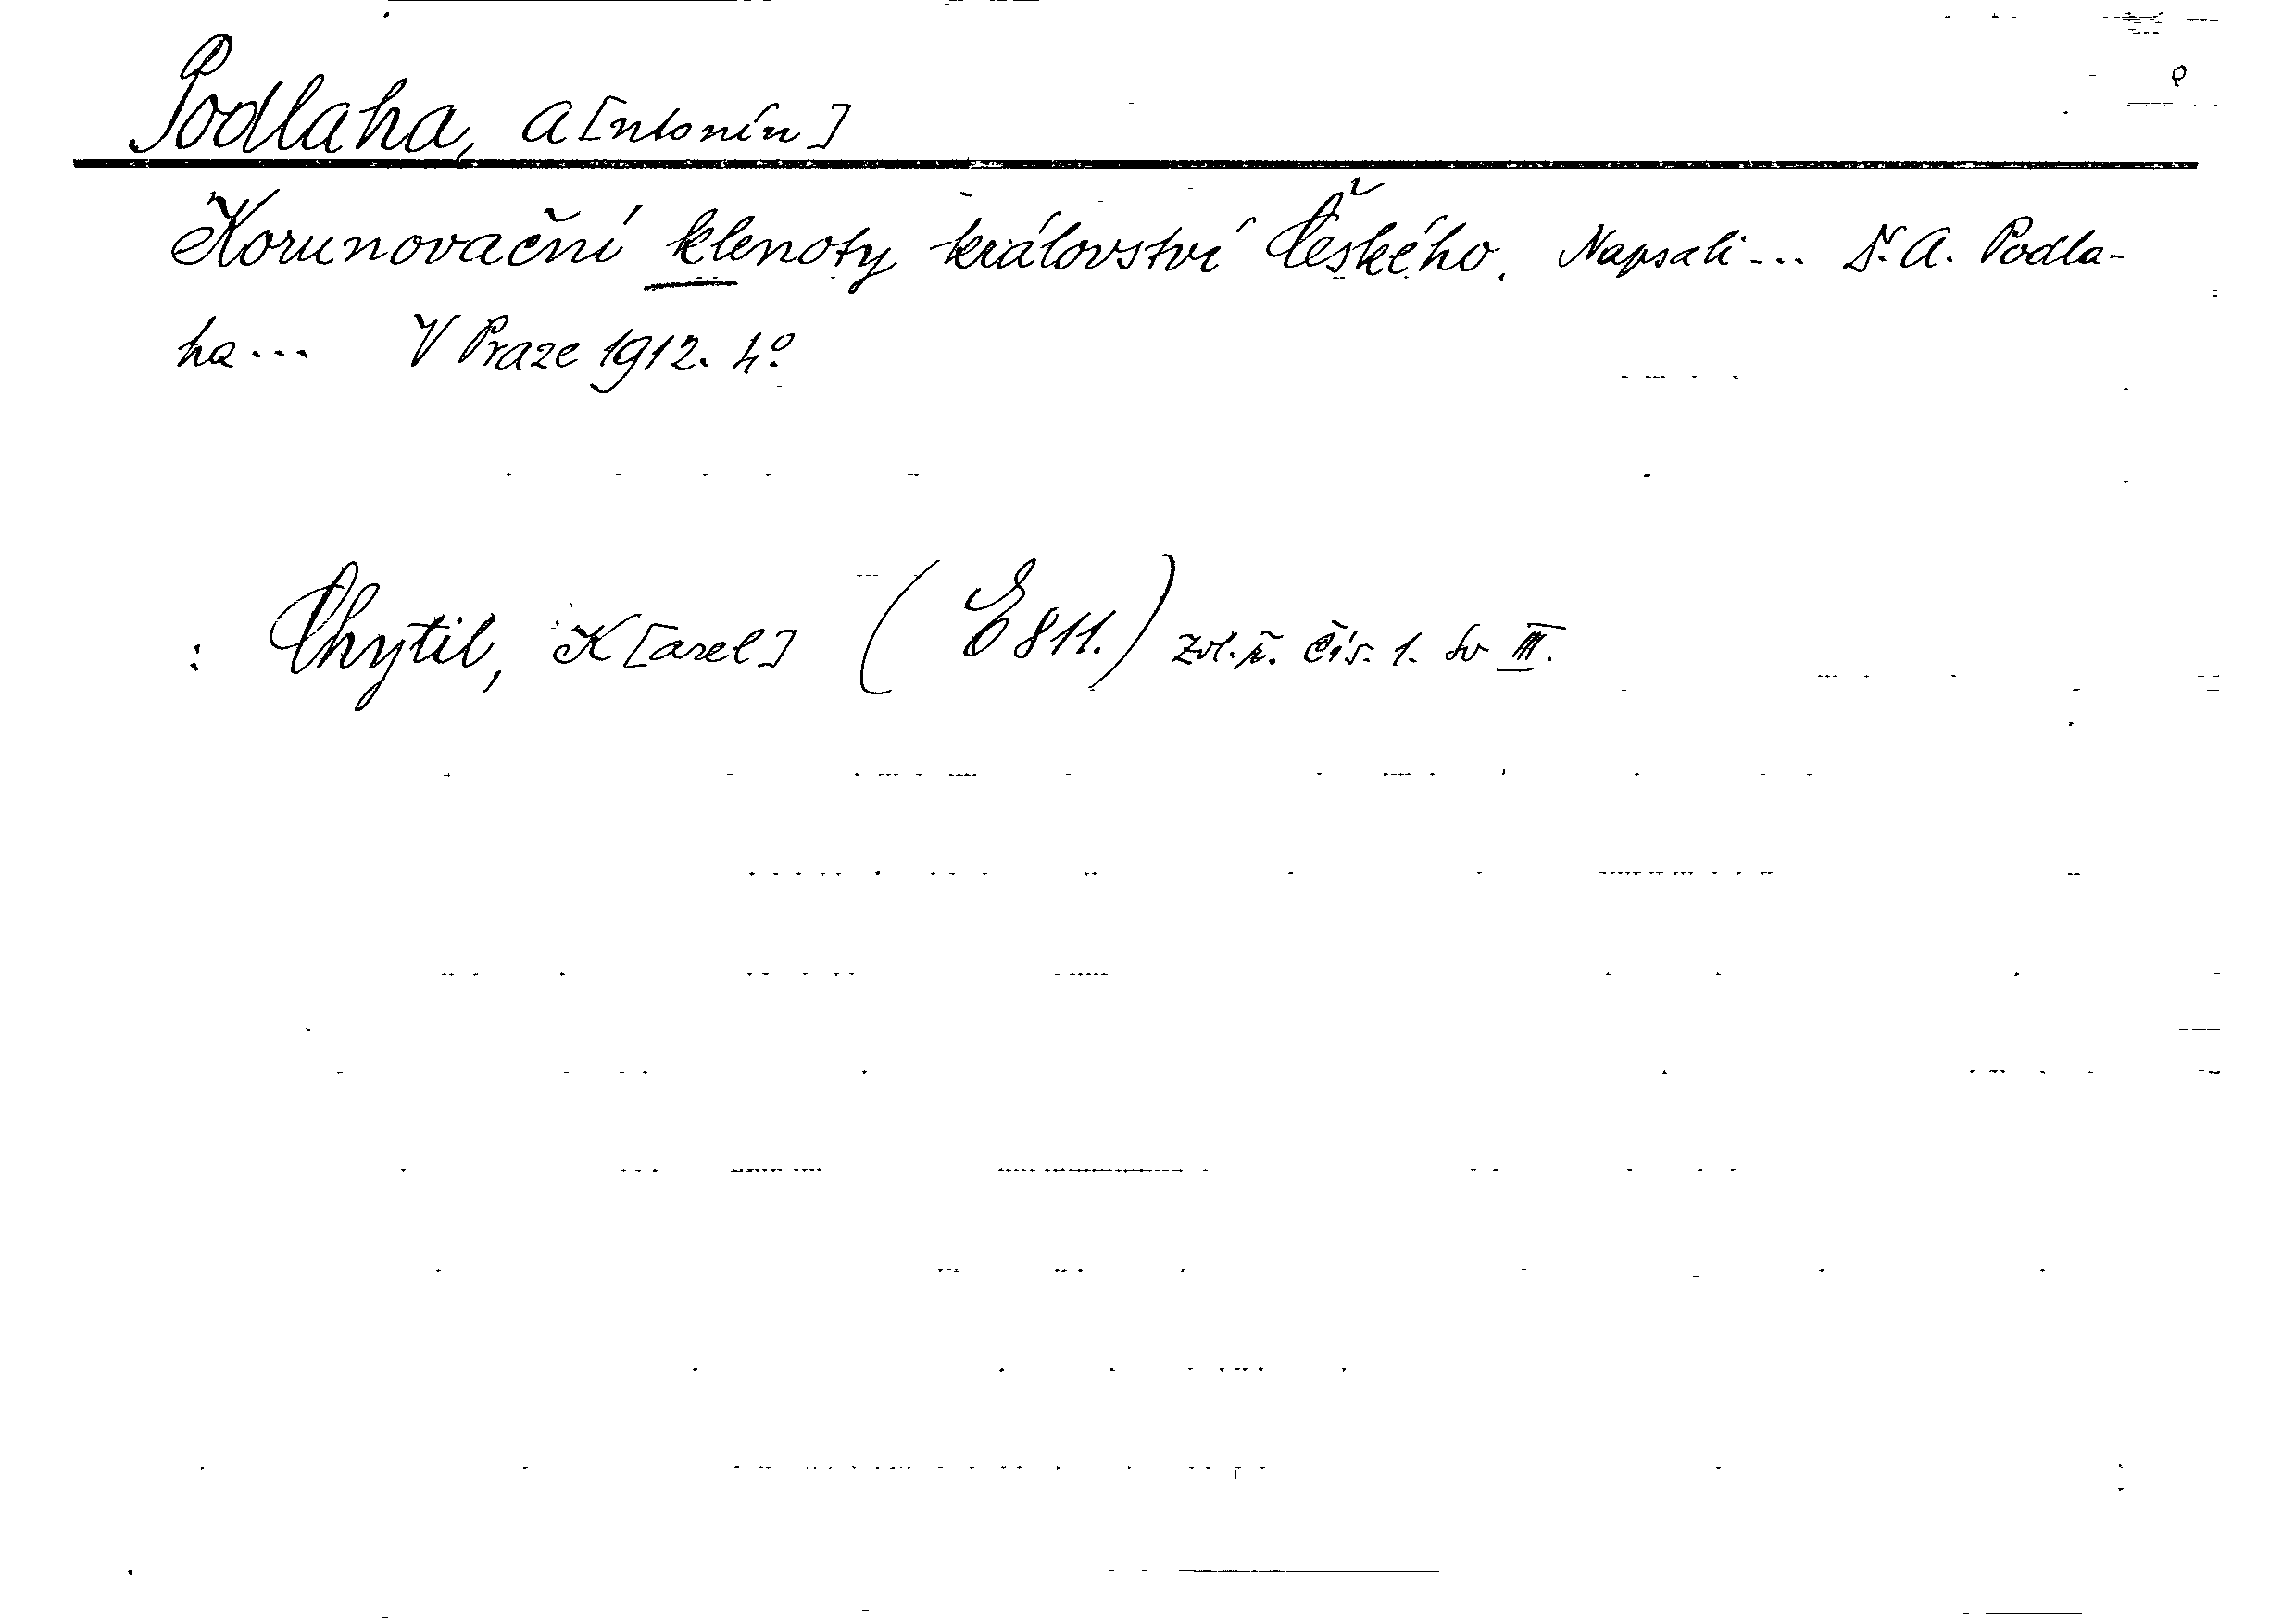 Podlaha, A[ntonín]
Korunovační klenoty království Českého. Napsali... Dr. A. Podla-
ha... V Praze 1912. 4º
: Chytil, K[arel] (E 811.) zvl. ř. čís. 1. sv III.